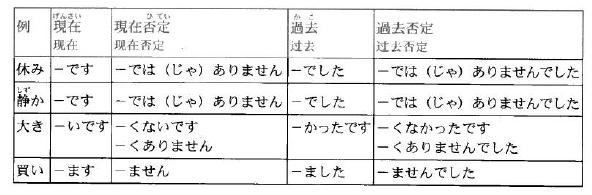 げんざい ひてい かこ
例 現在 現在否定 過去 過去否定
现在 现在否定 过去 过去否定
休み －です －では（じゃ）ありません －でした －では（じゃ）ありませんでした
しず
静か －です －では（じゃ）ありません －でした －では（じゃ）ありませんでした
大き －いです －くないです －かったです －くなかったです
－くありません －くありませんでした
買い －ます －ません －ました －ませんでした